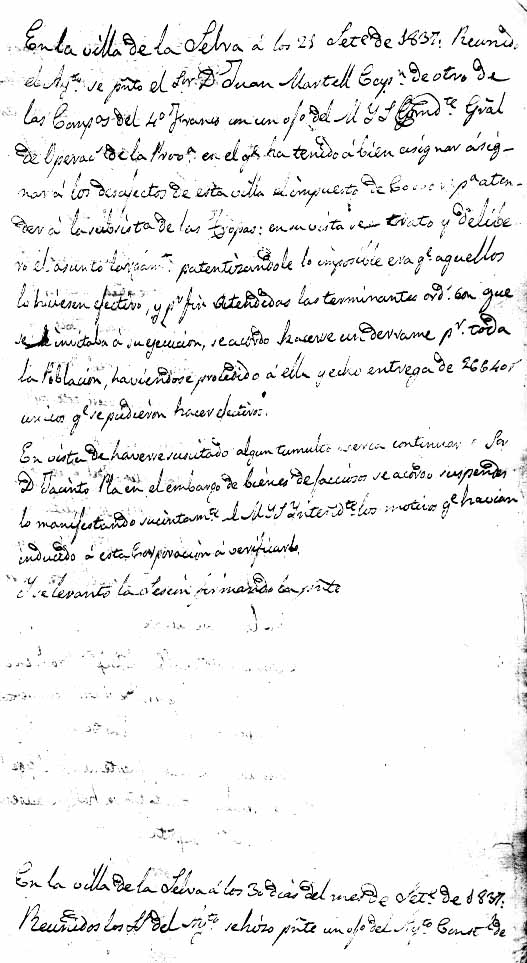 En la villa de la Selva á los 21 Setre de 1837. Reunido
el Aymto se pnto el Sor D Juan Martell Capn de otro de
las Compos del 4o Francs con un ofo del M Y S Comdte Gral
de Operacs de la Prova en el qe ha tenido á bien asignar á sig-
nar á los desafectos de esta villa el impuesto de pa aten-
der á la subsista de las Tropas: en su vista se trato y delibe
ro el asunto largamte patentizandole lo imposible era qe aquellos
lo hiciesen efectivo, y pr fin atendidas las terminantes ords con que
se invitaba á su ejecucion, se acordo hacerse un derrame pr toda
la Poblacion, haviendose procedido á ella y echo entrega de 2664 or
unicos qe se pudieron hacer efectivos.
En vista de haverse suscitado algun tumulto acerca continuar Sor
D Jacinto Pla en el embargo de bienes de facciosos se acordo suspender
lo manifestando sucintamte al M Y S Yntendte los motivos qe havian
inducido á esta Corporacion á verificarlo.
Y se levanto la Sesion firmando la pnte
En la villa de la Selva á los 30 dias del mes de Setre de 1837.
Reunidos los Ss del Aymto se hizo pnte un ofo del Aymto Constl de